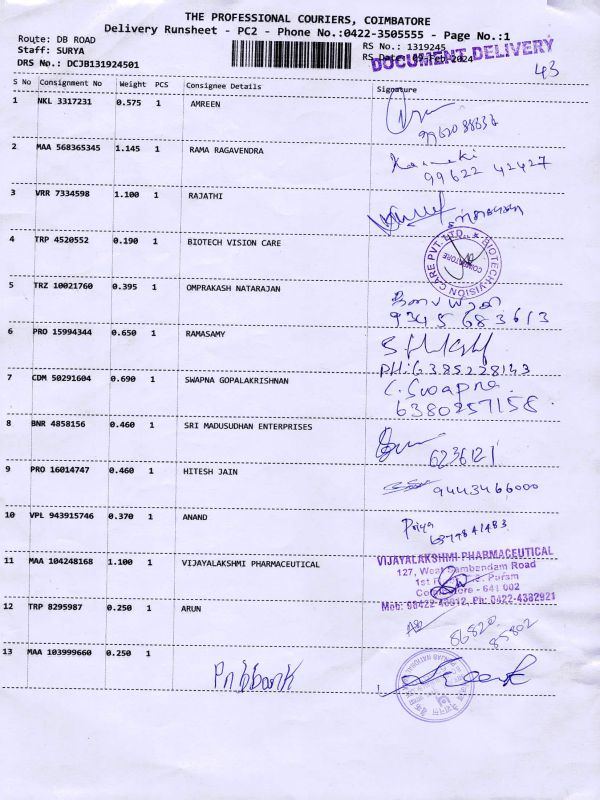 THE PROFESSIONAL COURIERS, COIMBATORE
Delivery Runsheet - PC2 - Phone No.:0422-3505555 - Page No.:1
Route: DB ROAD
Staff: SURYA
DRS No.: DCJB131924501
RS No.: 1319245
RS Date: 09 Feb 2024
DOCUMENT DELIVERY
43
S No Consignment No Weight PCS Consignee Details Signature
1 NKL 3317231 0.575 1 AMREEN
2 MAA 568365345 1.145 1 RAMA RAGAVENDRA
99622 42427
3 VRR 7334598 1.100 1 RAJATHI
4 TRP 4520552 0.190 1 BIOTECH VISION CARE
BIOTECH VISION CARE PVT. LTD.,
COIMBATORE
5 TRZ 10021760 0.395 1 OMPRAKASH NATARAJAN
9345683613
6 PRO 15994344 0.650 1 RAMASAMY
PH: 6385228143
7 CDM 50291604 0.690 1 SWAPNA GOPALAKRISHNAN
C. Swapna
6380257158
8 BNR 4858156 0.460 1 SRI MADUSUDHAN ENTERPRISES
6236121
9 PRO 16014747 0.460 1 HITESH JAIN
9443466000
10 VPL 943915746 0.370 1 ANAND
Priya
11 MAA 104248168 1.100 1 VIJAYALAKSHMI PHARMACEUTICAL
VIJAYALAKSHMI PHARMACEUTICAL
127, West Sambandam Road
1st Puram
Coimbatore - 641 002
Mob: Ph: 0422-4382921
12 TRP 8295987 0.250 1 ARUN
86820
85802
13 MAA 103999660 0.250 1
Pnb bank